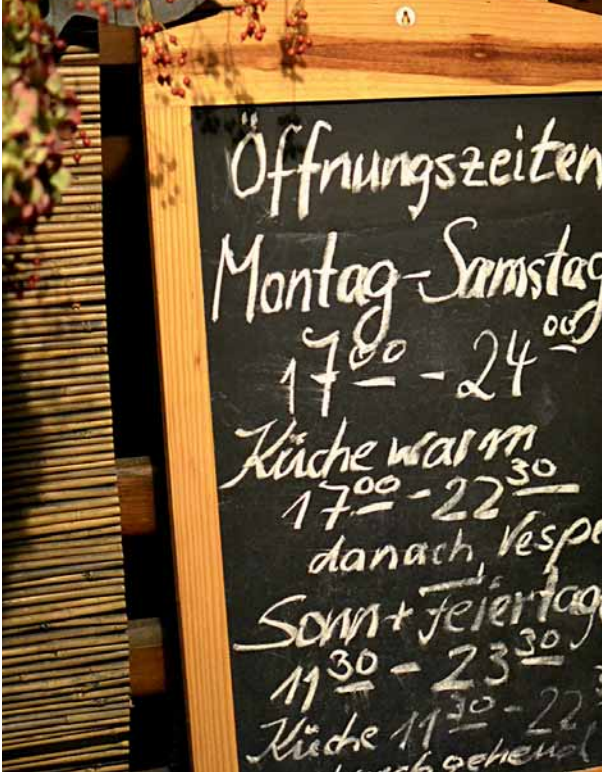 Öffnungszeiten
Montag-Samstag
17⁰⁰ - 24⁰⁰
Küche warm
17⁰⁰ - 22³⁰
danach Vespe
Sonn+Feiertag
11³⁰ - 23³⁰
Küche 11³⁰ - 22
durchgehend